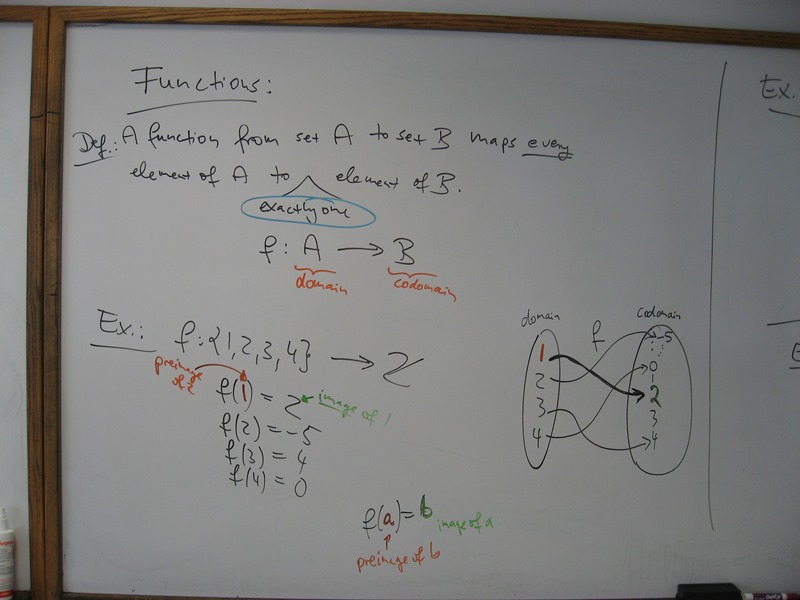 Functions:
Def.: A function from set A to set B maps every
element of A to exactly one element of B.
f : A → B
domain
codomain
Ex.: f : {1, 2, 3, 4} → ℤ
preimage
of 2
f(1) = 2 image of 1
f(2) = -5
f(3) = 4
f(4) = 0
f(a) = b image of a
preimage of b
domain
f
codomain
1
2
3
4
-5
⋮
0
1
2
3
4
⋮
Ex.
E